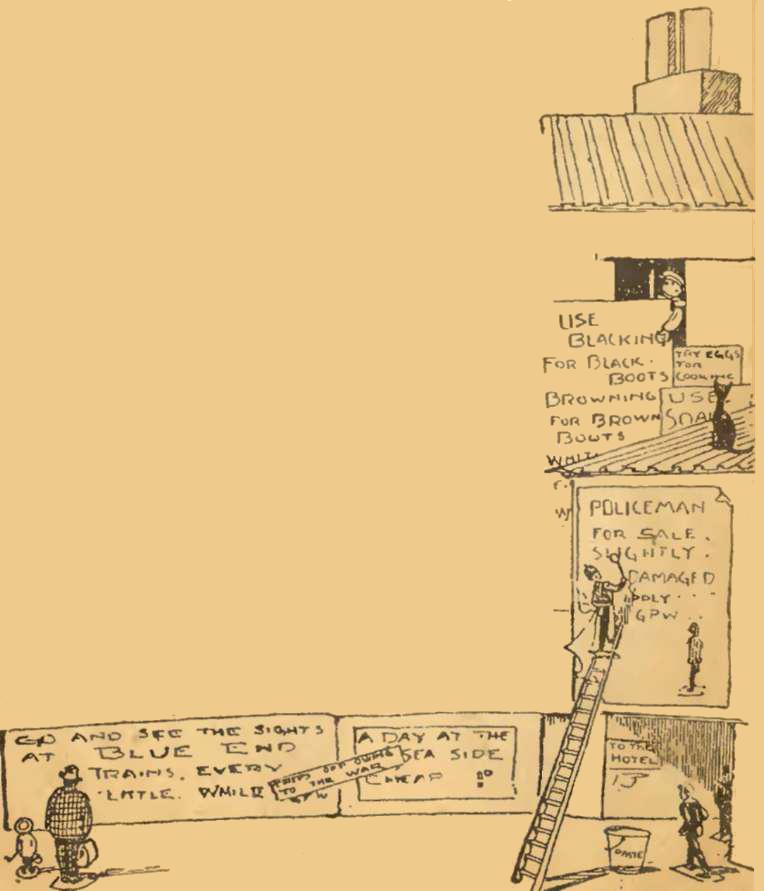 USE
BLACKING
FOR BLACK.
BOOTS
BROWNING
FOR BROWN
BOOTS
WHIT
TRY EGGS
FOR
COOKING
USE.
SOA
POLICEMAN
FOR SALE.
SLIGHTLY.
DAMAGED
PPLY...
GPW..
GO AND SEE THE SIGHTS
AT BLUE END
TRAINS. EVERY
LITTLE. WHILE
OFF OWING
TO THE WAR
GPW
A DAY AT THE
SEA SIDE
CHEAP
TO THE
HOTEL
PASTE